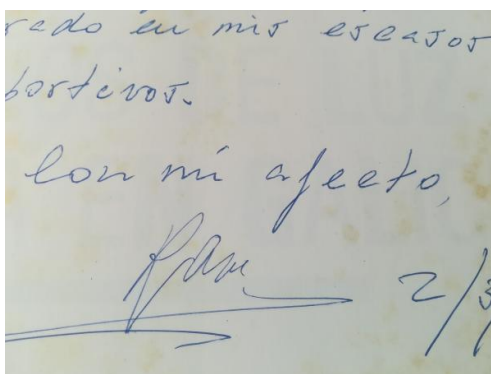 rado en mis escasos
portivos.
Con mi afecto,
2/3/